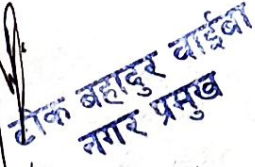 टोक बहादुर वाईबा
नगर प्रमुख